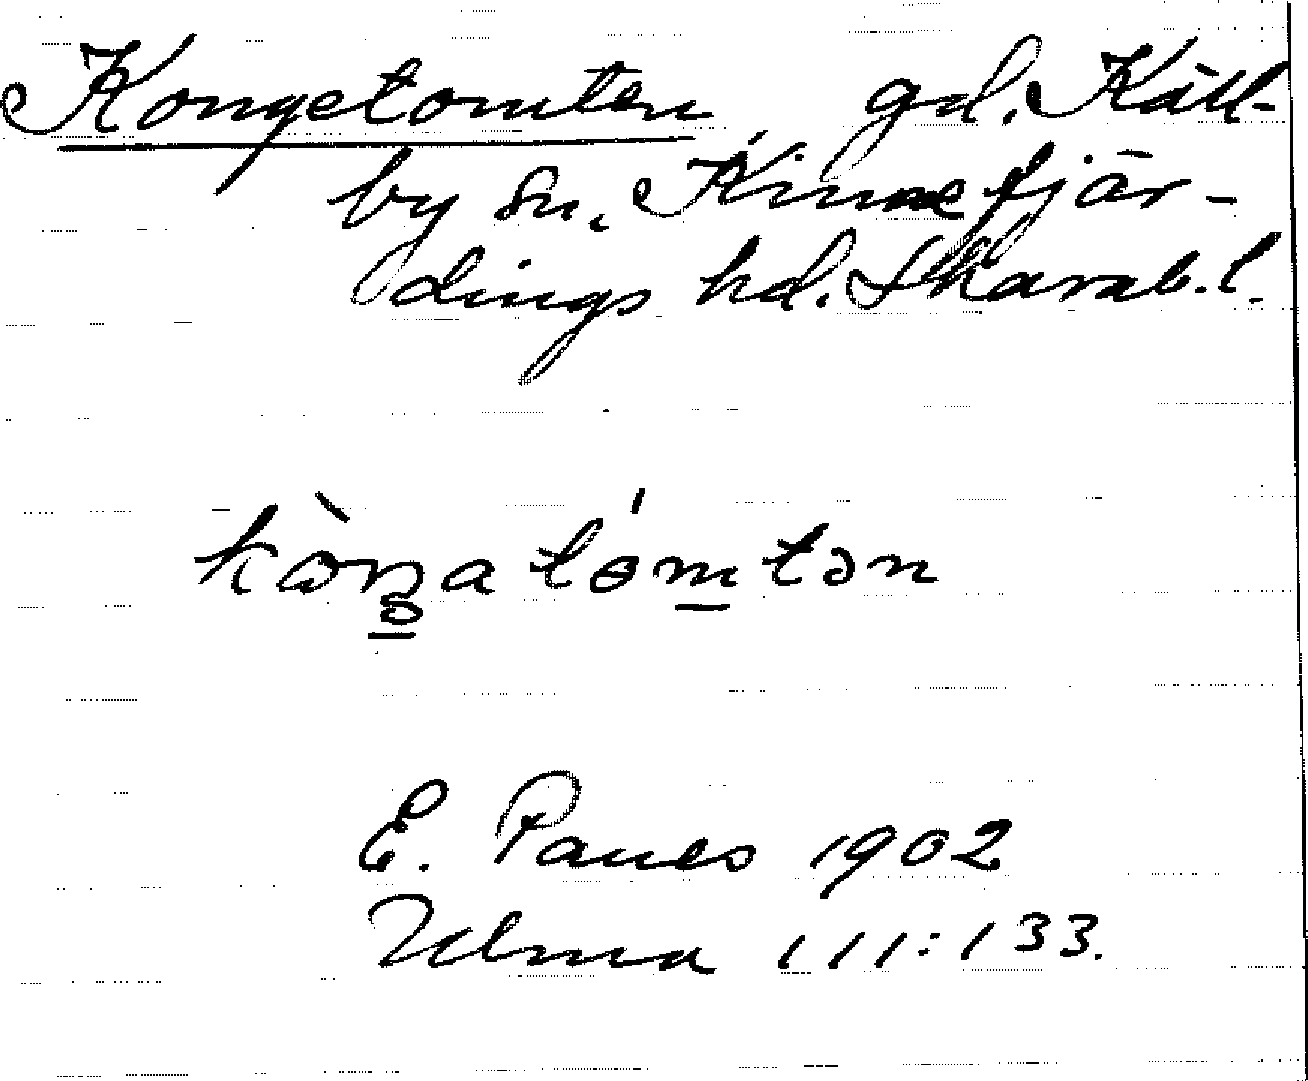 Kongetomten gd. Käll-
by sn. Kinnefjär-
dings hd. Skarab. l.
kàŋatómtən
E. Paues 1902
Ulma 111:133.